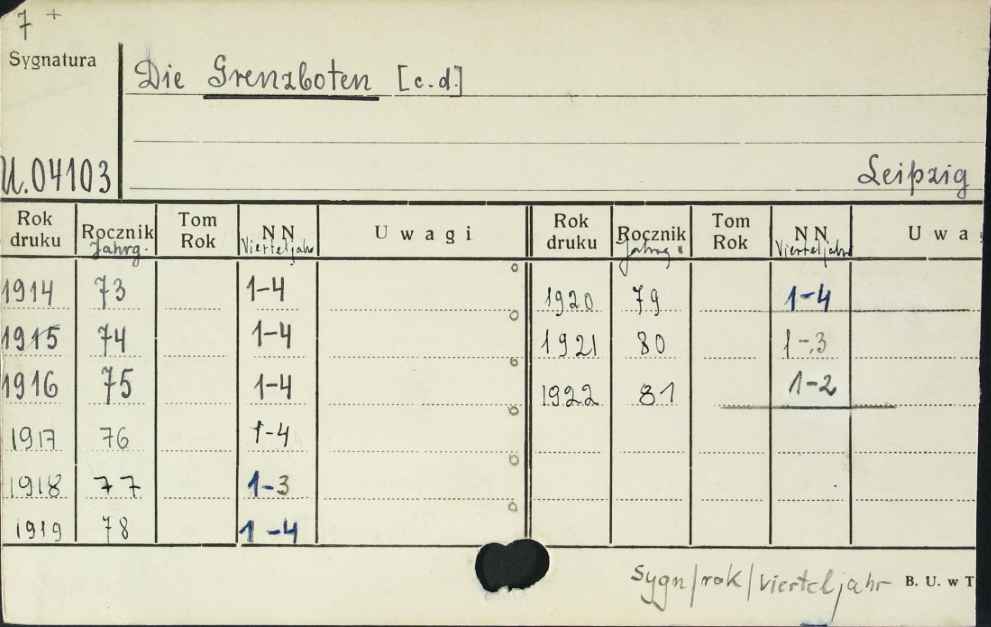 7 +
Sygnatura
Die Grenzboten [c.d.]
U.04103
Leipzig
Rok druku Rocznik Jahrg. Tom Rok NN Vierteljahr Uwagi Rok druku Rocznik Jahrg. Tom Rok NN Vierteljahr Uwa
1914 73 1-4 1920 79 1-4
1915 74 1-4 1921 80 1-3
1916 75 1-4 1922 81 1-2
1917 76 1-4
1918 77 1-3
1919 78 1-4
Sygn/rok/Vierteljahr B. U. w T